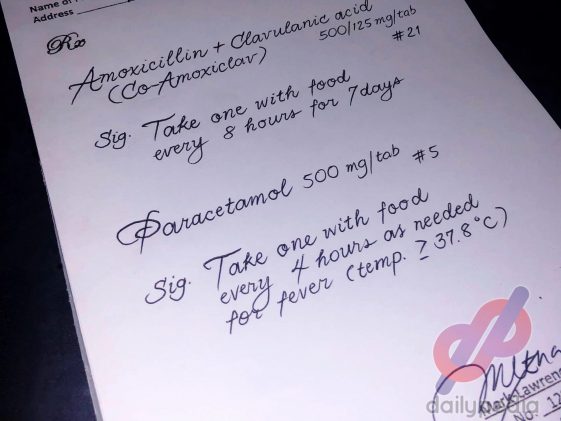 Name of
Address
Rx
Amoxicillin + Clavulanic acid
(Co-Amoxiclav) 500/125 mg/tab
#21
Sig. Take one with food
every 8 hours for 7 days
Paracetamol 500 mg/tab #5
Sig. Take one with food
every 4 hours as needed
for fever (temp. ≥ 37.8°C)
Mark Lawrenc
No. 12
dailypedia